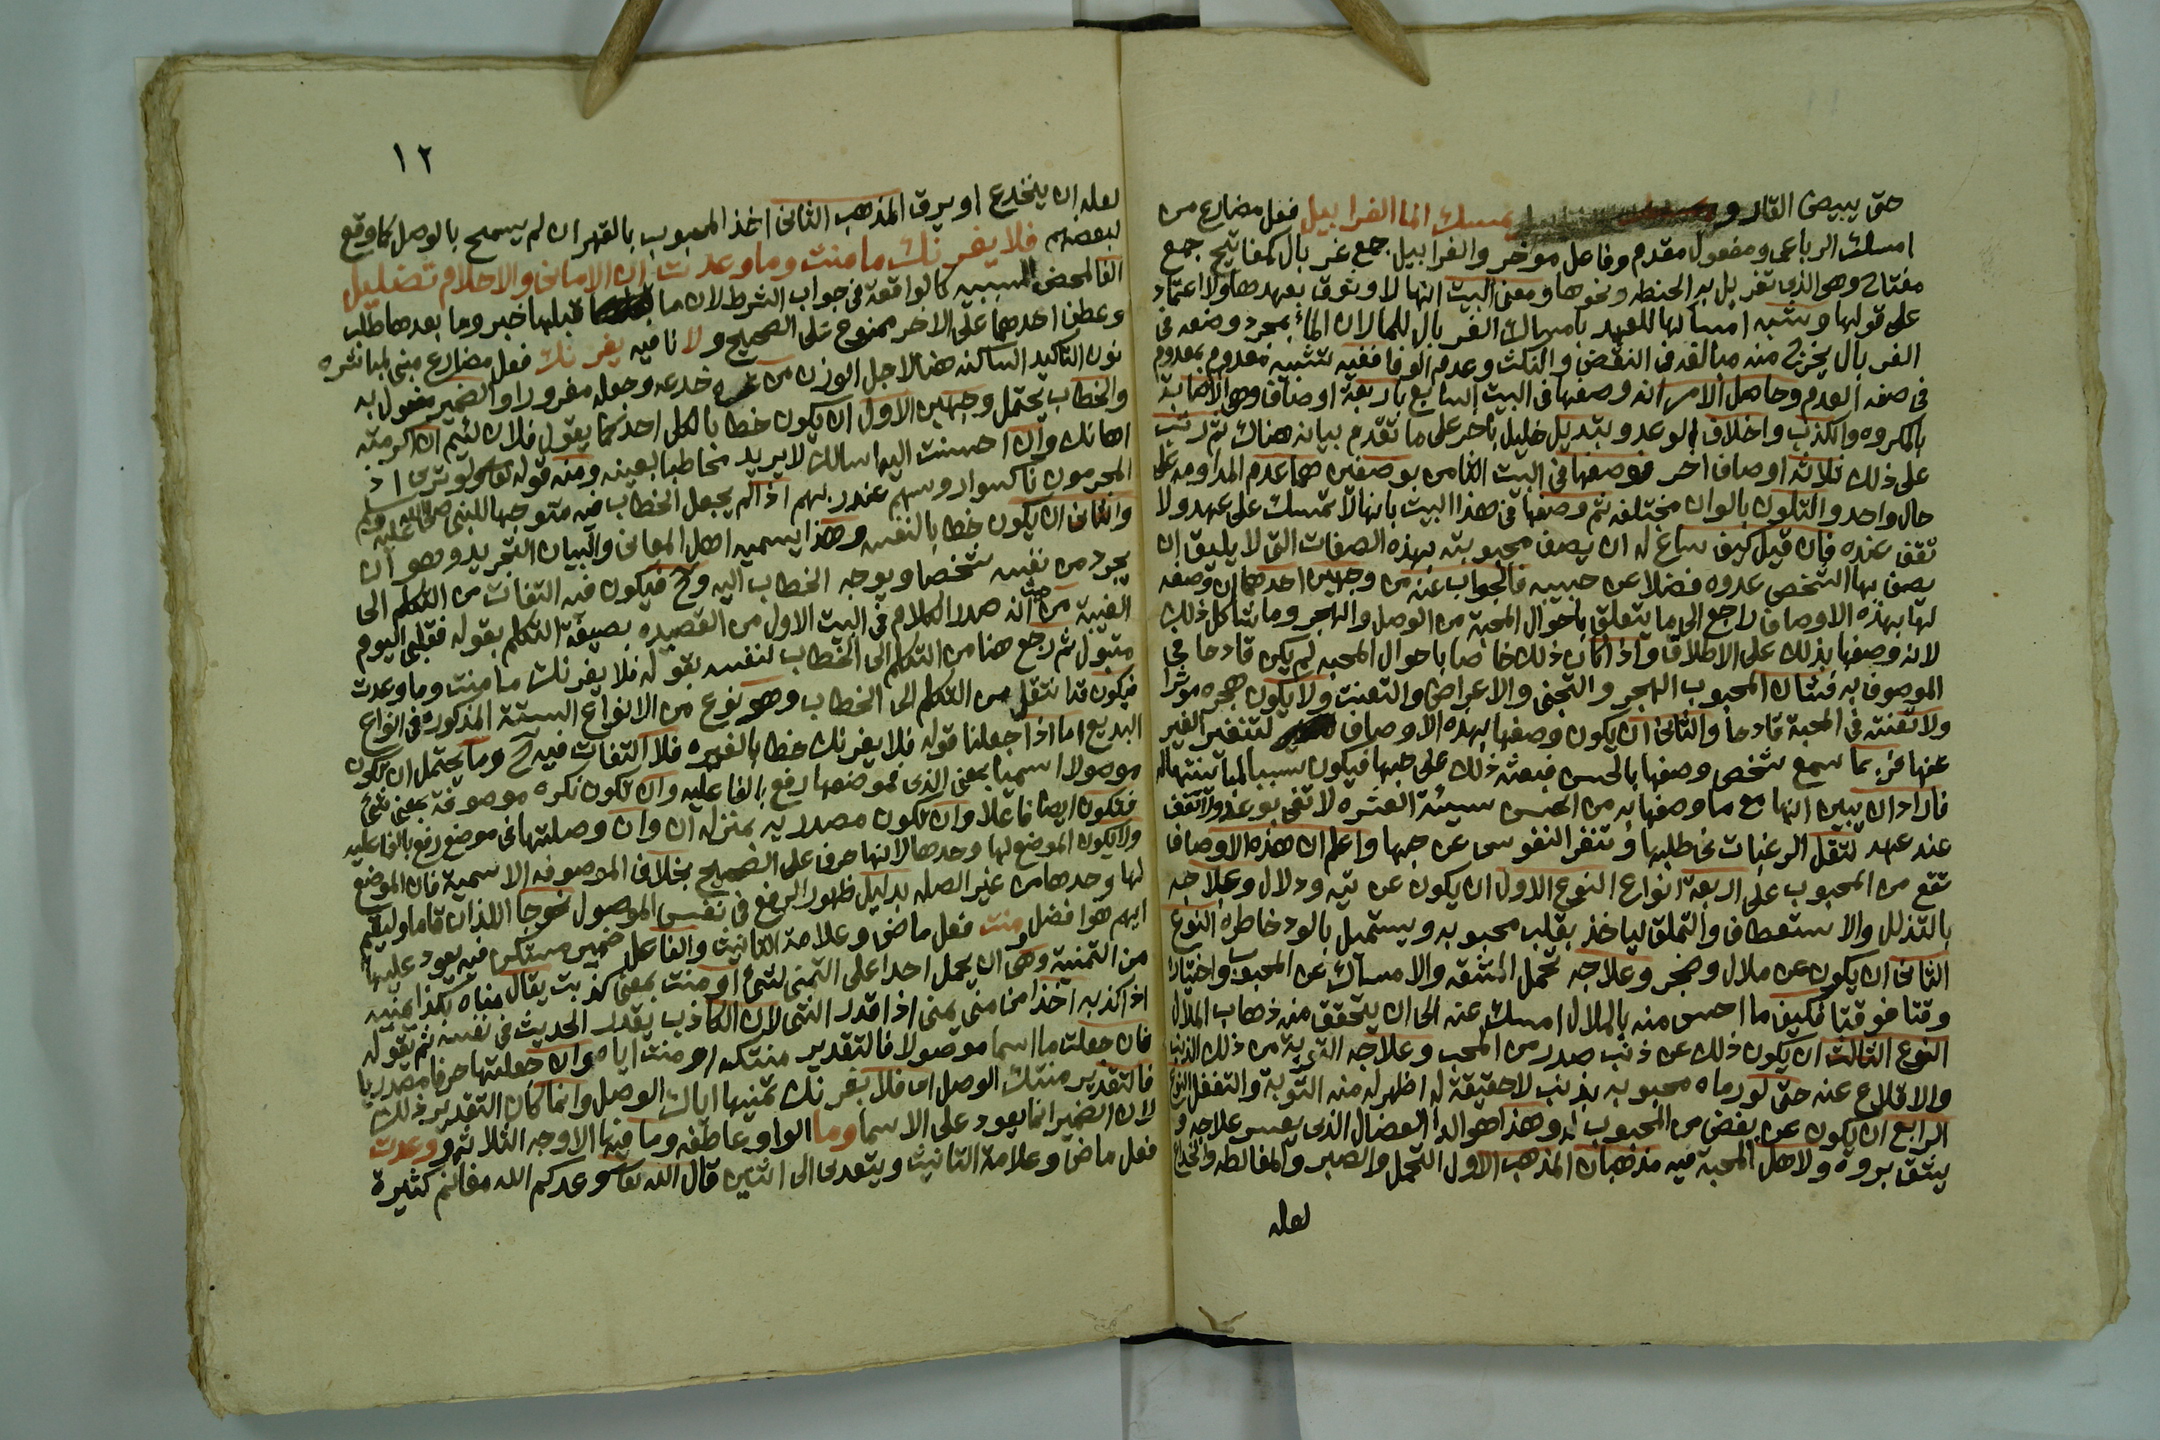 حتى يبيض القار و يمسك الما الغرابيل فعل مضارع من
امسك الرباعي ومفعول مقدم وفاعل موخر والغرابيل جمع غربال كمفاتيح جمع
مفتاح وهي الذي تغربل به الحنطه ونحوها ومعنى البيت انها لا وثوق بعهدها ولا اعتماد
على قولها وشبه امساكها للعهد بامساك الغربال للما لان الماء بمجرد وضعه في
الغربال يخرج منه مبالغه في النقض والنكث وعدم الوفا ففيه تشبيه معدوم بمعدوم
في صفه العدم وحاصل الامر انه وصفها في البيت السابع باربعة اوصاف وهي الاصابة
بالمكروه والكذب واخلاف الوعد وتبديل خليل باخر على ما تقدم بيانه هناك ثم رتب
على ذلك ثلاثه اوصاف اخر فوصفها في البيت الثامن بوصفين هما عدم المداومه على
حال واحد والتلون بالوان مختلفه ثم وصفها في هذا البيت بانها لا تمسك على عهد ولا
تقف عنده فان قيل كيف ساغ له ان يصف محبوبته بهذه الصفات التي لا يليق ان
يصف بها الشخص عدوه فضلا عن حبيبه فالجواب عنه من وجهين احدهما ان وصفه
لها بهذه الاوصاف راجع الى ما يتعلق باحوال المحبة من الوصل والهجر وما شاكل ذلك
لانه وصفها بذلك على الاطلاق واذا كان ذلك خاصا باحوال المحبه لم يكن قادحا في
الموصوف به فشان المحبوب الهجر والتجني والاعراض والتعنت ولا يكون هجره موثرا
ولا تعنته في المحبة قادحا والثاني ان يكون وصفها بهذه الاوصاف لتنفير الغير
عنها فربما سمع شخص وصفها بالحسن فبعثه ذلك على حبها فيكون سببا لمباينتها له
فاراد ان يبين انها مع ما وصفها به من الحسن سيئة العشره لا تفي بوعد ولا تقف
عند عهد لتقل الرغبات في طلبها وتنفر النفوس عن حبها واعلم ان هذه الاوصاف
تقع من المحبوب على اربعة انواع النوع الاول ان يكون عن تيه ودلال وعلاجه
بالتذلل والاستعطاف والتملق لياخذ بقلب محبوبه ويستميل بالود خاطره النوع
الثاني ان يكون عن ملال وضجر وعلاجه تحمل المشقه والامساك عن المحبوب واختباره
وقتا فوقتا فكيف ما احس منه بالملال امسك عنه الى ان يتحقق منه ذهاب الملال
النوع الثالث ان يكون ذلك عن ذنب صدر من المحب وعلاجه التوبة من ذلك الذنب
والاقلاع عنه حتى لو رماه محبوبه بذنب لا حقيقة له اظهر له منه التوبة والتنصل النوع
الرابع ان يكون عن بغض من المحبوب له وهذا هو الداء العضال الذي يعسر علاجه و
يشق بروه ولاهل المحبة فيه مذهبان المذهب الاول التحمل والصبر والمغالطه والخداع
لعله
١٢
لعله ان ينخدع او يرق المذهب الثاني اخذ المحبوب بالقهر ان لم يسمح بالوصل كما وقع
لبعضهم فلا يغرنك ما منت وما وعدت ان الاماني والاحلام تضليل
الفا لمحض السببيه كالواقعة في جواب الشرط لان ما قبلها خبر وما بعدها طلب
وعطف احدهما على الاخر ممنوع على الصحيح ولا نافيه يغرنك فعل مضارع مبني لمباشره
نون التاكيد الساكنه هنا لاجل الوزن من غره خدعه وجعله مغرورا والضمير مفعول به
والخطاب يحتمل وجهين الاول ان يكون خطابا لكل احد كما يقول فلان لئيم ان اكرمته
اهانك وان احسنت اليه اسا لك لا يريد مخاطبا بعينه ومنه قوله تعالى ولو ترى اذ
المجرمون ناكسوا روسهم عند ربهم اذا لم يجعل الخطاب فيه متوجها للنبي صلى الله عليه وسلم
والثاني ان يكون خطابا لنفسه وهذا يسميه اهل المعاني والبيان التجريد وهو ان
يجرد من نفسه شخصا ويوجه الخطاب اليه وح فيكون فيه التفات من التكلم الى
الغيبة من حيث انه صدر الكلام في البيت الاول من القصيده بصيغة التكلم بقوله فقلبي اليوم
متبول ثم رجع هنا من التكلم الى الخطاب لنفسه بقوله فلا يغرنك ما منت وما وعدت
فيكون قد انتقل من التكلم الى الخطاب وهو نوع من الانواع الستة المذكوره في انواع
البديع اما اذا جعلنا قوله فلا يغرنك خطابا لغيره فلا التفات فيه ح وما يحتمل ان تكون
موصولا اسميا بمعنى الذي فموضعها رفع بالفاعليه وان تكون نكره موصوفة بمعنى شئ
فتكون ايضا فاعلا وان تكون مصدريه بمنزله ان وان وصلتها في موضع رفع بالفاعليه
ولا يكون الموضع لها وحدها لانها حرف على الصحيح بخلاف الموصوفه الاسمية فان الموضع
لها وحدها من غير الصله بدليل ظهور الرفع في نفس الموصول نحو جا اللذان قاما وليقم
ايهم هو افضل ومنت فعل ماضي وعلامة التانيث والفاعل ضمير مستكن فيه يعود عليها
من التمنية وهي ان يحمل احدا على التمني لشئ او منت بمعنى كذبت يقال مناه بكذا تمنيه
اذا كذبه اخذا من منى يمنى اذا قدر الشئ لان الكاذب يقدر الحديث في نفسه ثم يقوله
فان جعلت ما اسما موصولا فالتقدير منتكه او منت اياه وان جعلتها حرفا مصدريا
فالتقدير منتك الوصل اى فلا يغرنك تمنيها اياك الوصل وانما كان التقدير ذلك
لان الضمير انما يعود على الاسما وما الواو عاطفه وما فيها الاوجه الثلاثه و وعدت
فعل ماض وعلامة التانيث ويتعدى الى اثنين قال الله تعالى وعدكم الله مغانم كثيرة